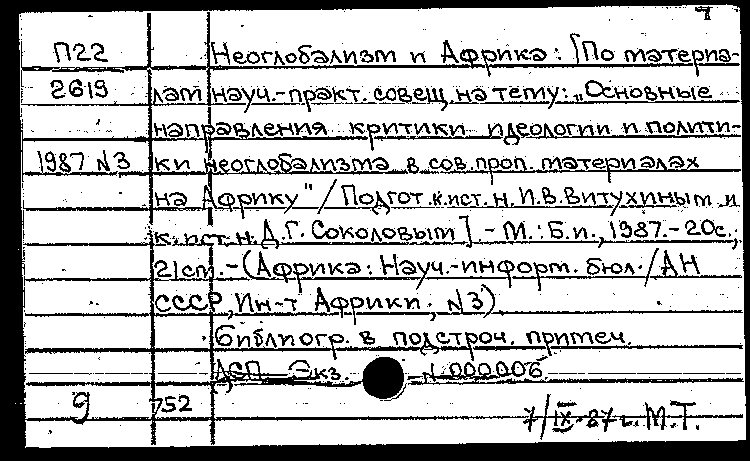 П22 Неоглобализм и Африка: [По материа-
2619 лам науч.-практ. совещ. на тему: „Основные
направления критики идеологии и полити-
1987 N3 ки неоглобализма в сов. проп. материалах
на Африку" / Подгот. к.ист.н. И.В.Витухиным и
к.ист.н. Д.Г. Соколовым]. - М.: Б.и., 1987. - 20с.;
21см. - (Африка: Науч.-информ. бюл. / АН
СССР, Ин-т Африки; N3).
Библиогр. в подстроч. примеч.
ДСП. Экз. N 000006
9 752
7/IX-87г. М.Т.